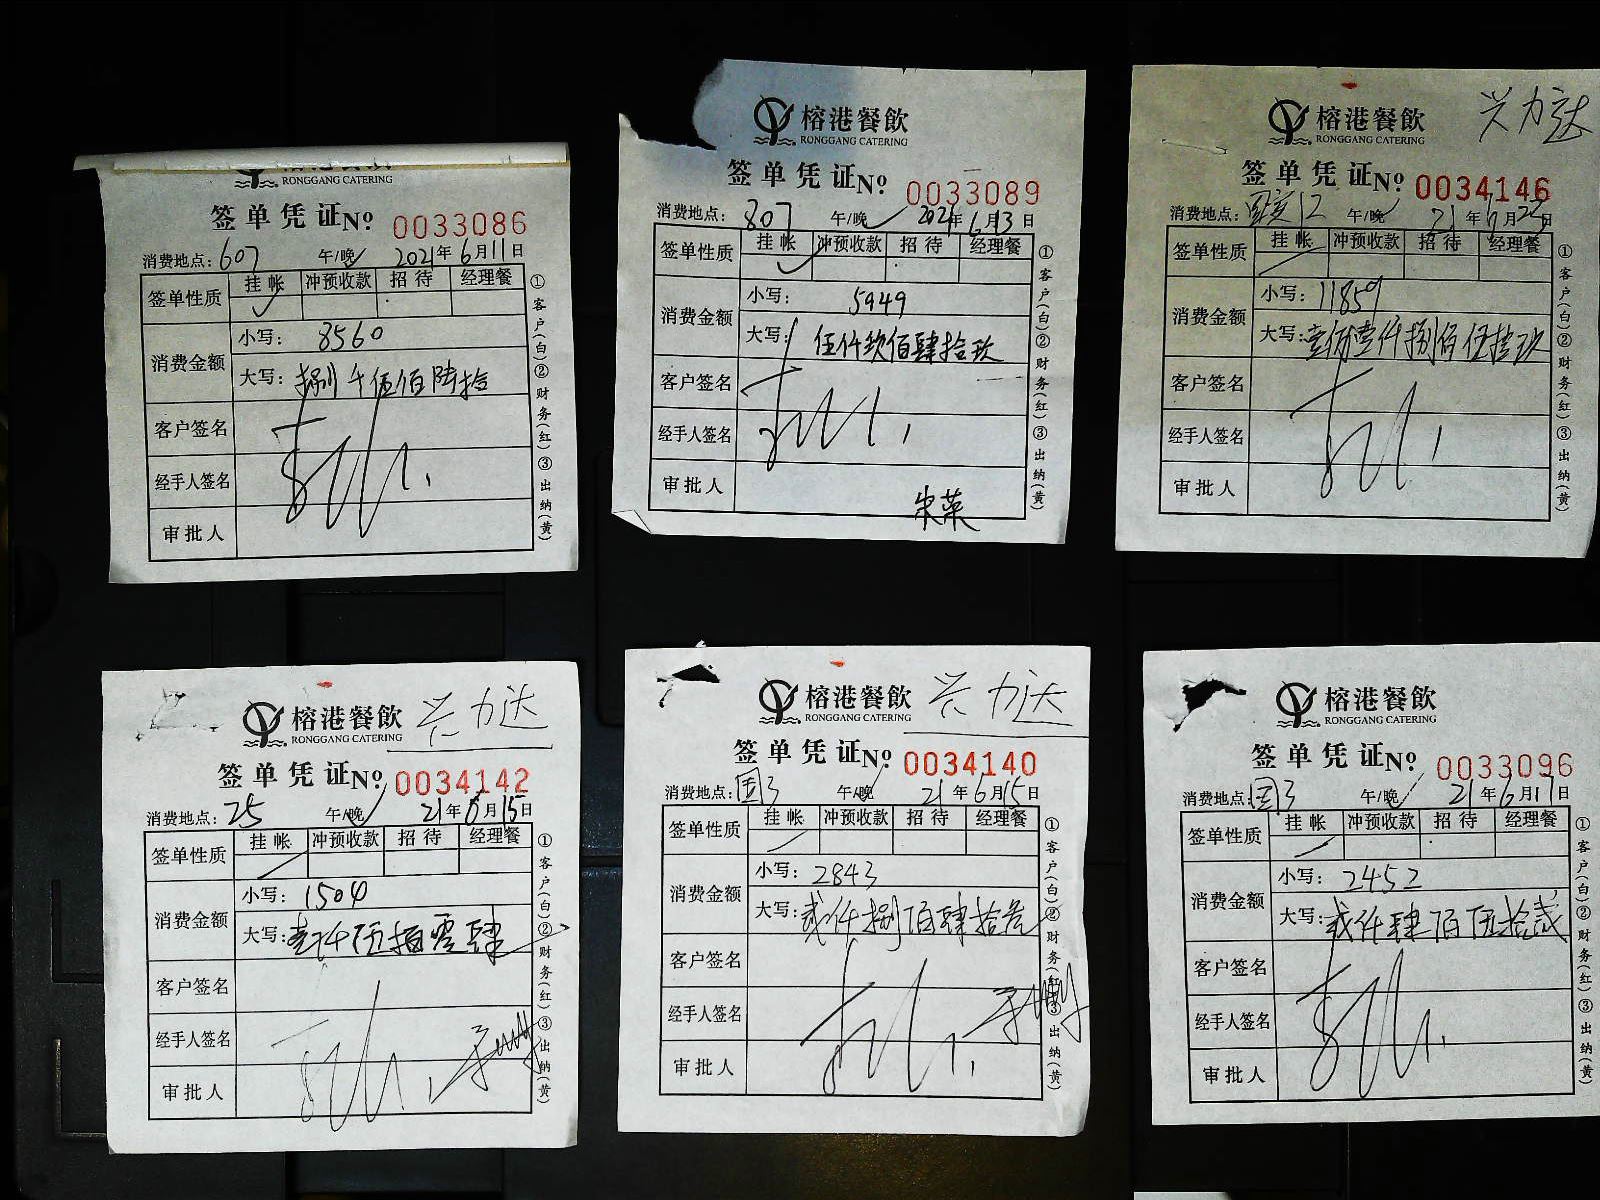 榕港餐飲
RONGGANG CATERING
签单凭证 No 0033086
消费地点：607 午/晚 2021年6月11日
签单性质 挂帐 冲预收款 招待 经理餐
✓
消费金额 小写：8560
大写：捌千伍佰陆拾
客户签名
经手人签名
审批人
①客户(白)②财务(红)③出纳(黄)
榕港餐飲
RONGGANG CATERING
签单凭证 No 0033089
消费地点：807 午/晚 2021年6月13日
签单性质 挂帐 冲预收款 招待 经理餐
✓
消费金额 小写：5949
大写：伍仟玖佰肆拾玖
客户签名
经手人签名
审批人
朱荣
①客户(白)②财务(红)③出纳(黄)
榕港餐飲 兴力达
RONGGANG CATERING
签单凭证 No 0034146
消费地点：12 午/晚 21年6月22日
签单性质 挂帐 冲预收款 招待 经理餐
消费金额 小写：11859
大写：壹万壹仟捌佰伍拾玖
客户签名
经手人签名
审批人
①客户(白)②财务(红)③出纳(黄)
榕港餐飲 兴力达
RONGGANG CATERING
签单凭证 No 0034142
消费地点：25 午/晚 21年6月15日
签单性质 挂帐 冲预收款 招待 经理餐
消费金额 小写：1504
大写：壹仟伍佰零肆
客户签名
经手人签名
审批人
①客户(白)②财务(红)③出纳(黄)
榕港餐飲 兴力达
RONGGANG CATERING
签单凭证 No 0034140
消费地点：国3 午/晚 21年6月15日
签单性质 挂帐 冲预收款 招待 经理餐
消费金额 小写：2843
大写：贰仟捌佰肆拾叁
客户签名
经手人签名
审批人
①客户(白)②财务(红)③出纳(黄)
榕港餐飲
RONGGANG CATERING
签单凭证 No 0033096
消费地点：国3 午/晚 21年6月17日
签单性质 挂帐 冲预收款 招待 经理餐
消费金额 小写：2452
大写：贰仟肆佰伍拾贰
客户签名
经手人签名
审批人
①客户(白)②财务(红)③出纳(黄)